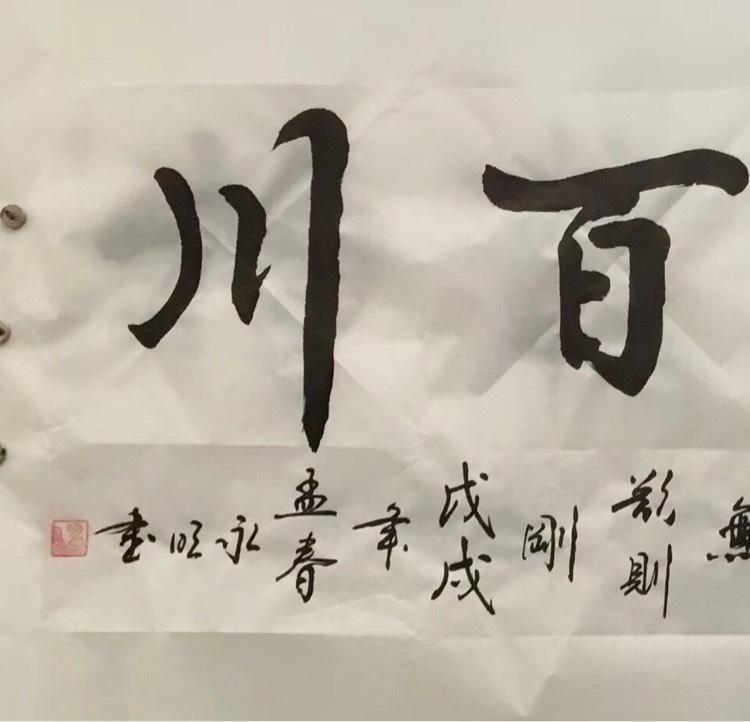 百川
無欲則剛 戊戌年孟春 永明書